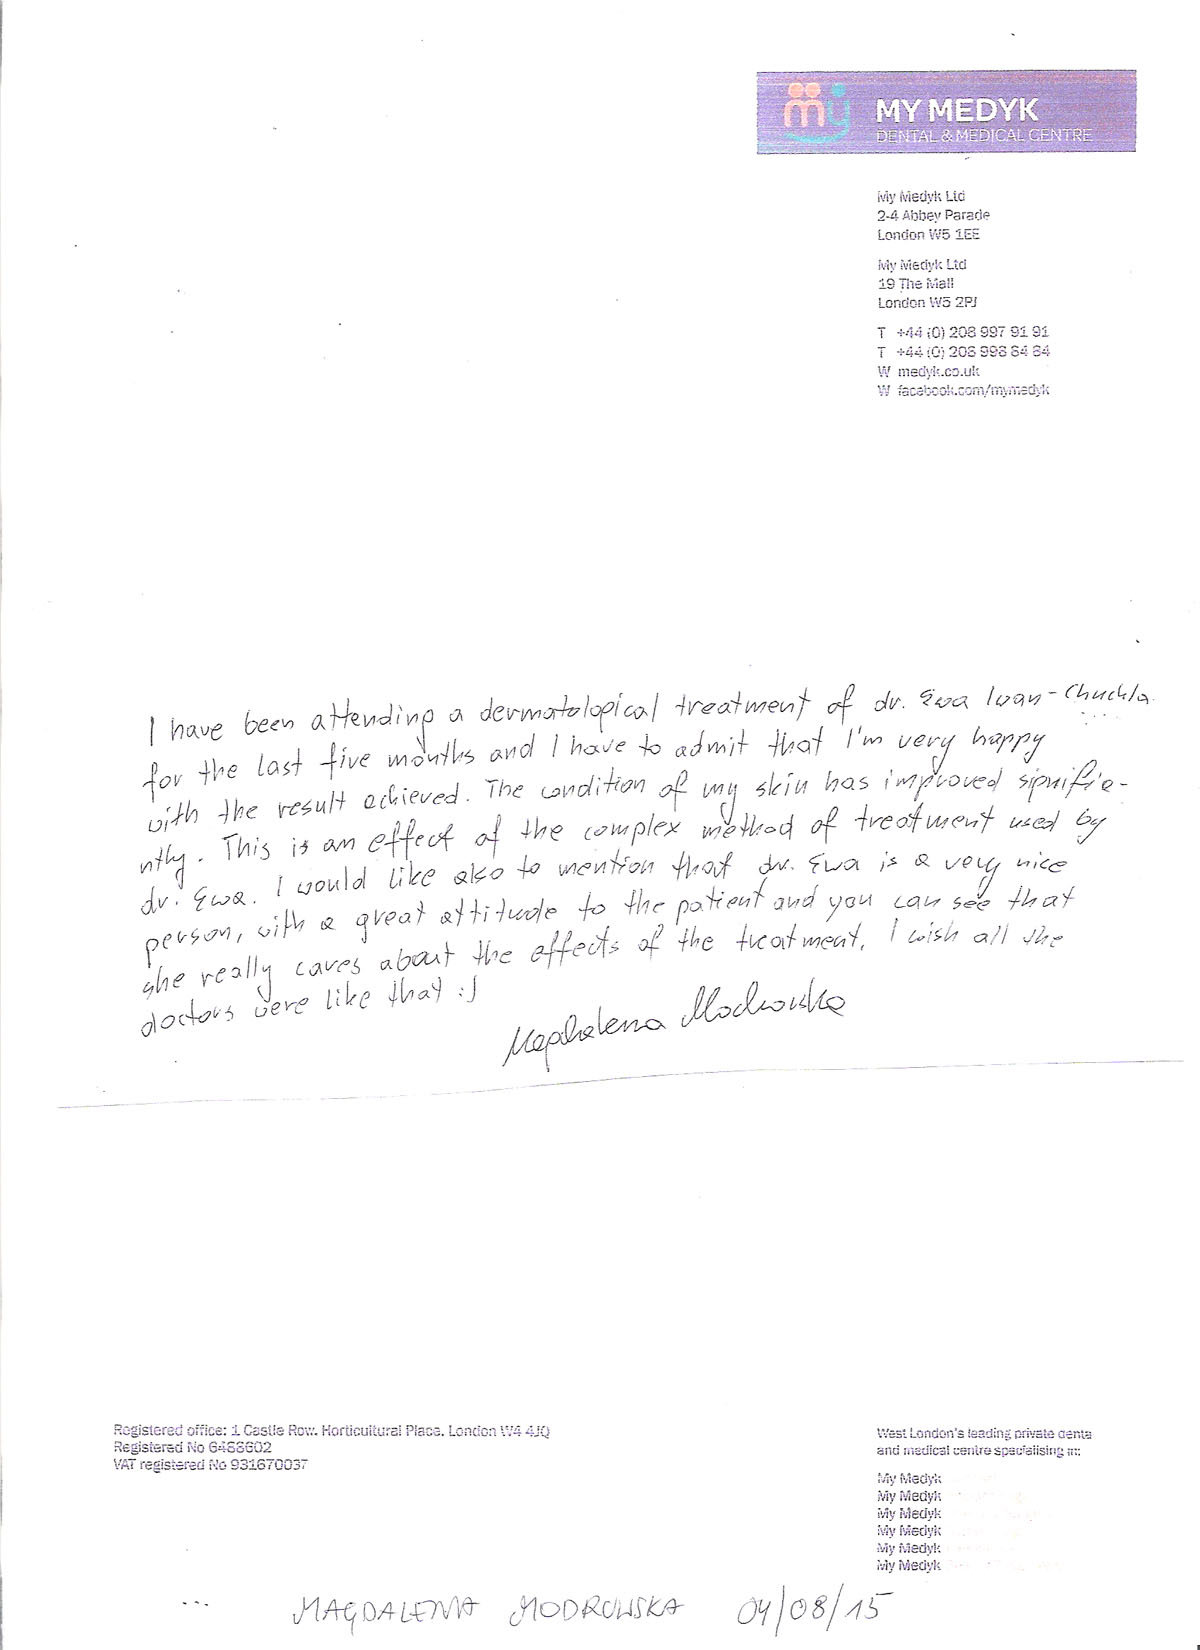 my MY MEDYK
DENTAL & MEDICAL CENTRE
My Medyk Ltd
2-4 Abbey Parade
London W5 1EE
My Medyk Ltd
19 The Mall
London W5 2PJ
T +44 (0) 208 997 91 91
T +44 (0) 208 998 84 84
W medyk.co.uk
W facebook.com/mymedyk
I have been attending a dermatological treatment of dr. Ewa Iwan-Chuchla
for the last five months and I have to admit that I'm very happy
with the result achieved. The condition of my skin has improved signifia-
ntly. This is an effect of the complex method of treatment used by
dr. Ewa. I would like also to mention that dr. Ewa is a very nice
person, with a great attitude to the patient and you can see that
she really cares about the effects of the treatment. I wish all the
doctors were like that :)
Magdalena Modrowska
Registered office: 1 Castle Row. Horticultural Place. London W4 4JQ
Registered No
VAT registered No 931670037
West London's leading private denta
and medical centre specialising in:
My Medyk
My Medyk
My Medyk
My Medyk
My Medyk
My Medyk
MAGDALENA MODROWSKA 04/08/15